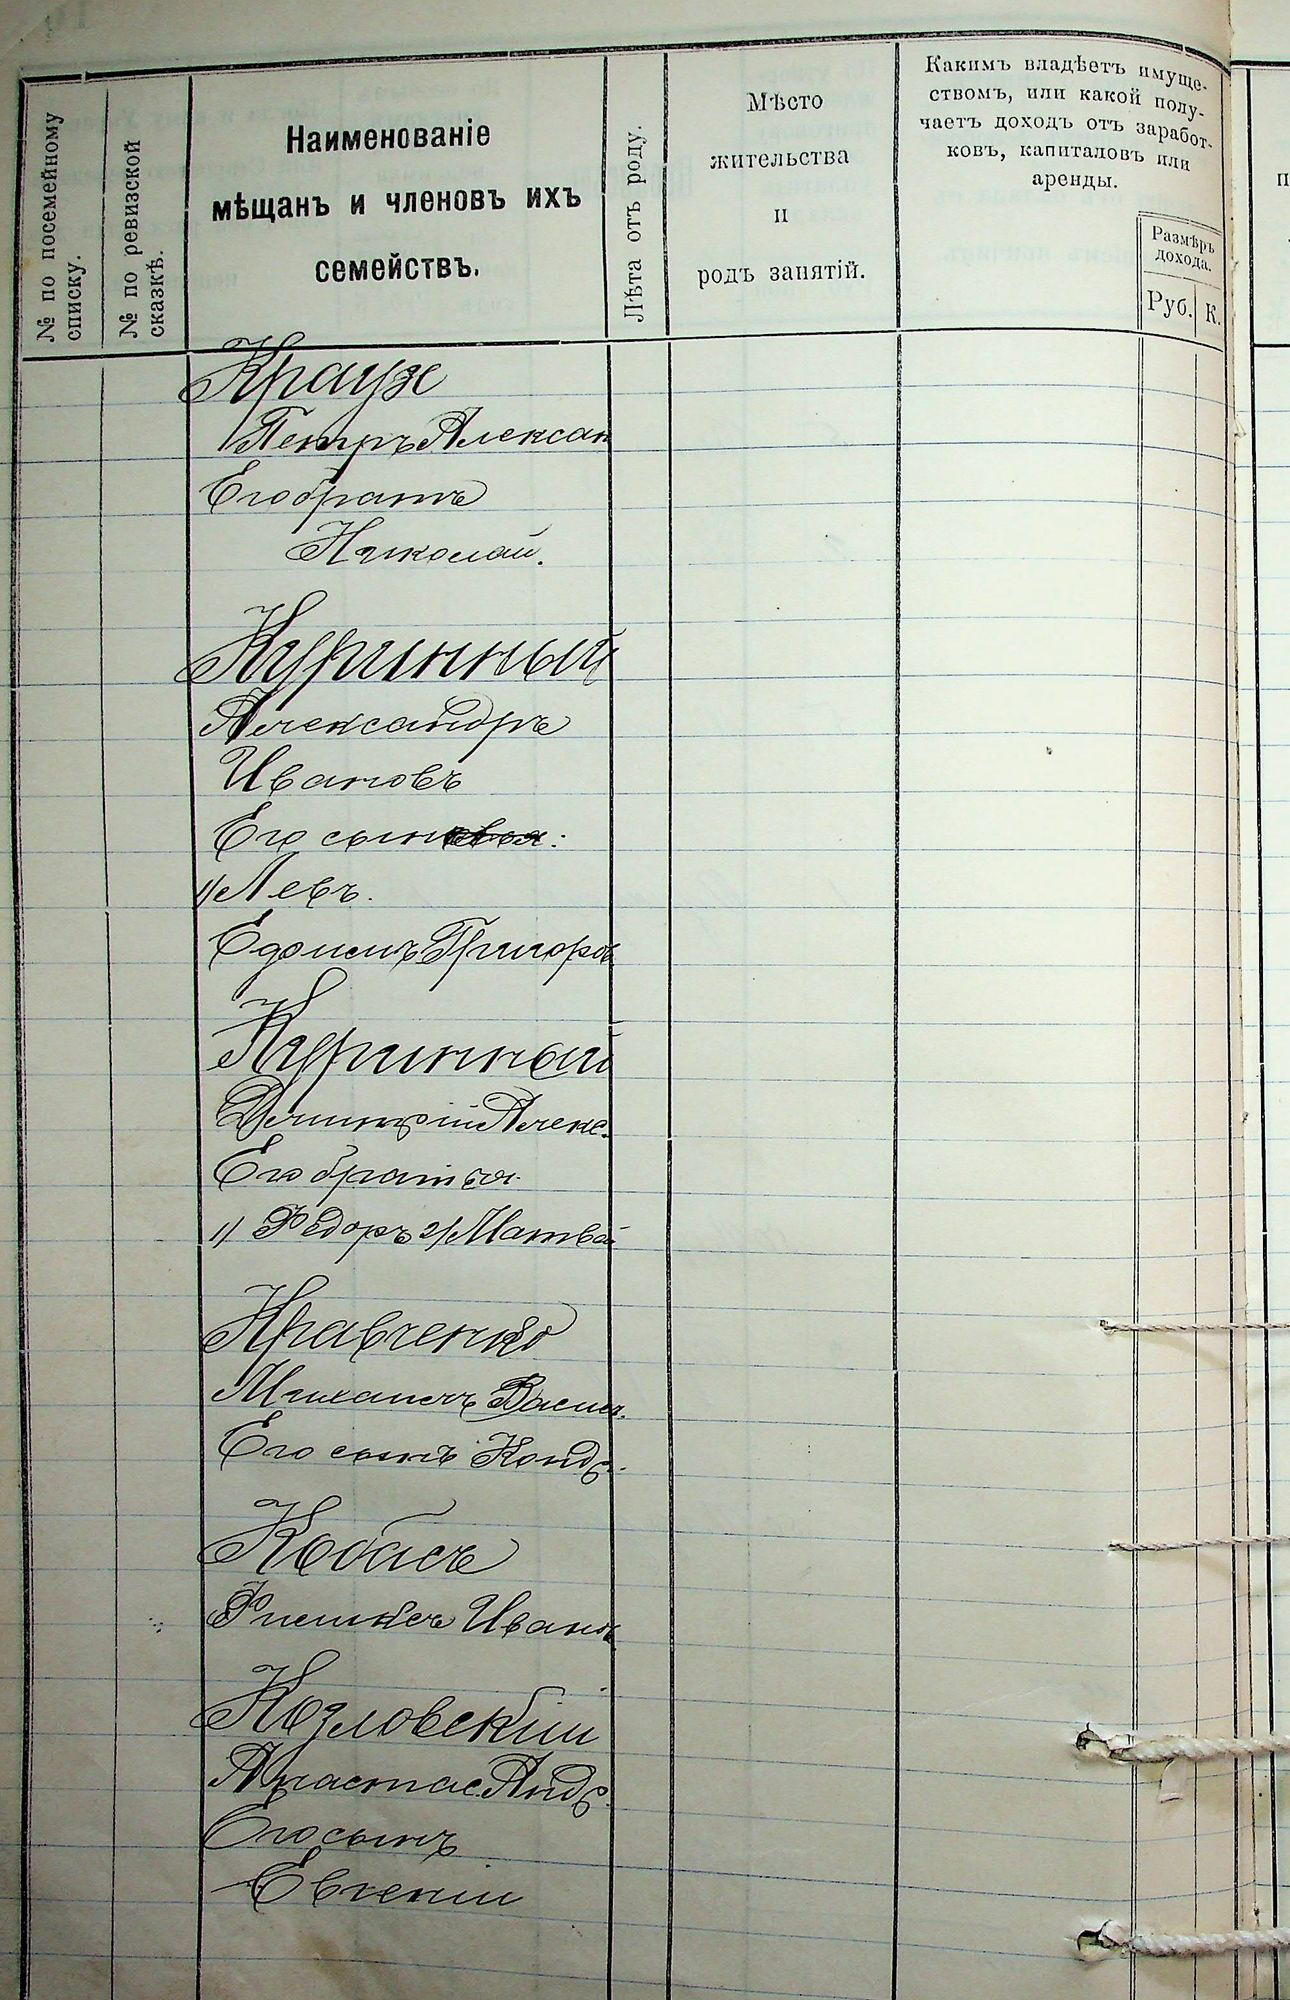 № по посемейному
списку.
№ по ревизской
сказкѣ.
Наименованіе
мѣщанъ и членовъ ихъ
семействъ.
Лѣта отъ роду.
Мѣсто
жительства
и
родъ занятій.
Какимъ владѣетъ имуще-
ствомъ, или какой полу-
чаетъ доходъ отъ заработ-
ковъ, капиталовъ или
аренды.
Размѣръ
дохода.
Руб. К.
Краузе
Петръ Алексан
Его братъ
Николай.
Куринный
Александръ
Ивановъ
Его сын
1) Левъ.
Григоров
Куринный
Дмитрій Алекс.
Его братья
1) Федоръ 2) Матвѣй
Кравченко
Михаилъ Васил.
Его сынъ Конд.
Кобась
Иванов
Козловскій
Анд.
Его сынъ
Евгеній